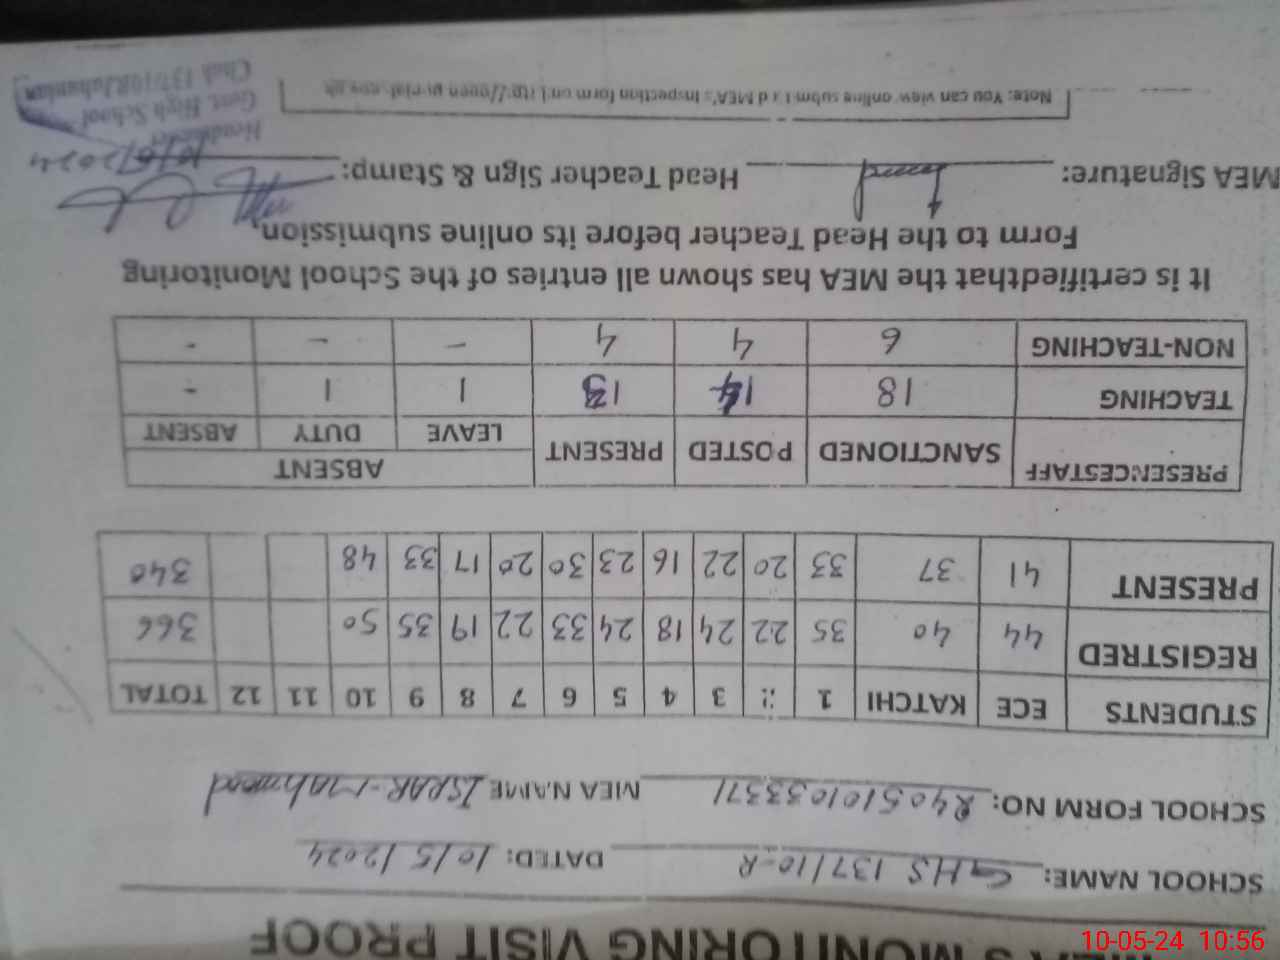 MEA'S MONITORING VISIT PROOF
SCHOOL NAME: GHS 137/10-R DATED: 10/5/2024
SCHOOL FORM NO: R405101033371 MEA NAME ISRAR-Mahmood
STUDENTS ECE KATCHI 1 2 3 4 5 6 7 8 9 10 11 12 TOTAL
REGISTRED 44 40 35 22 24 18 24 33 22 19 35 50 366
PRESENT 41 37 33 20 22 16 23 30 20 17 33 48 340
PRESENCESTAFF SANCTIONED POSTED PRESENT ABSENT
LEAVE DUTY ABSENT
TEACHING 18 14 13 1 1 -
NON-TEACHING 6 4 4 - - -
It is certifiedthat the MEA has shown all entries of the School Monitoring
Form to the Head Teacher before its online submission.
MEA Signature: Head Teacher Sign & Stamp:
10/5/2024
Headmaster
Govt. High School
Chak 137/10R Jahanian
Note: You can view online submitted MEA's inspection form on
10-05-24 10:56